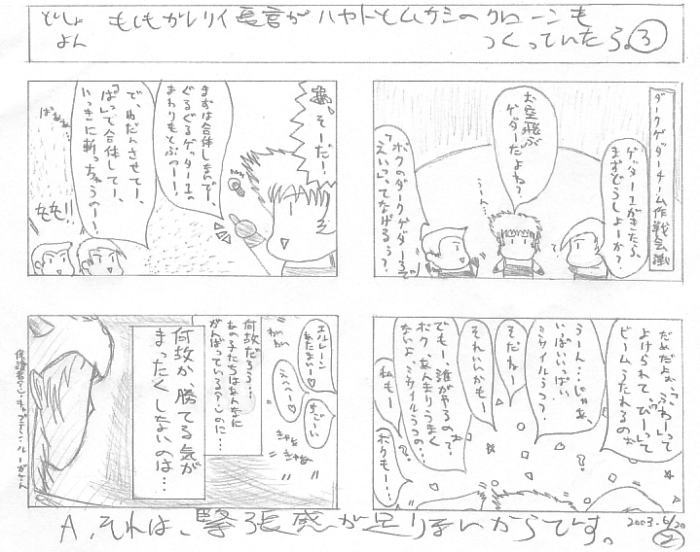 どじょ
よん
もしもガレリイ長官がハヤトとムサシのクローンも
つくっていたら。③
ダークゲッターチーム作戦会議
ゲッター1がきたら、
まずどうしよーか？
お空飛ぶ
ゲッターだよね？
うーん…
？
ボクのダークゲッター3で
「えいっ」ってなげるぅ？
だめだよぉ、ふわーって
よけられて、びーって
ビームうたれるのぉ
うーん…じゃぁ、
いっぱいいっぱい
ミサイルうつ？
そだねー
それいいかもー
でもー、誰がやるの？
ボク、あんまりうまく
ないよ、ミサイルうつの…
私もー
ボクもー…
そーだ！
まずは合体しないで、
ぐるぐるゲッター1の
まわりをとぶのー！
で、油だんさせてー、
「ばっ」で合体してー、
いっきに斬っちゃうのー！
もも!!
エルレーン
あたまいー！
すごーい
えへへー♡
わいわい
きゃっきゃっ
何故だろう…
あの子たちはあんなに
がんばっているのに…
何故か、勝てる気が
まったくしないのは…
A.それは、緊張感が足りないからです。
2003.6/20